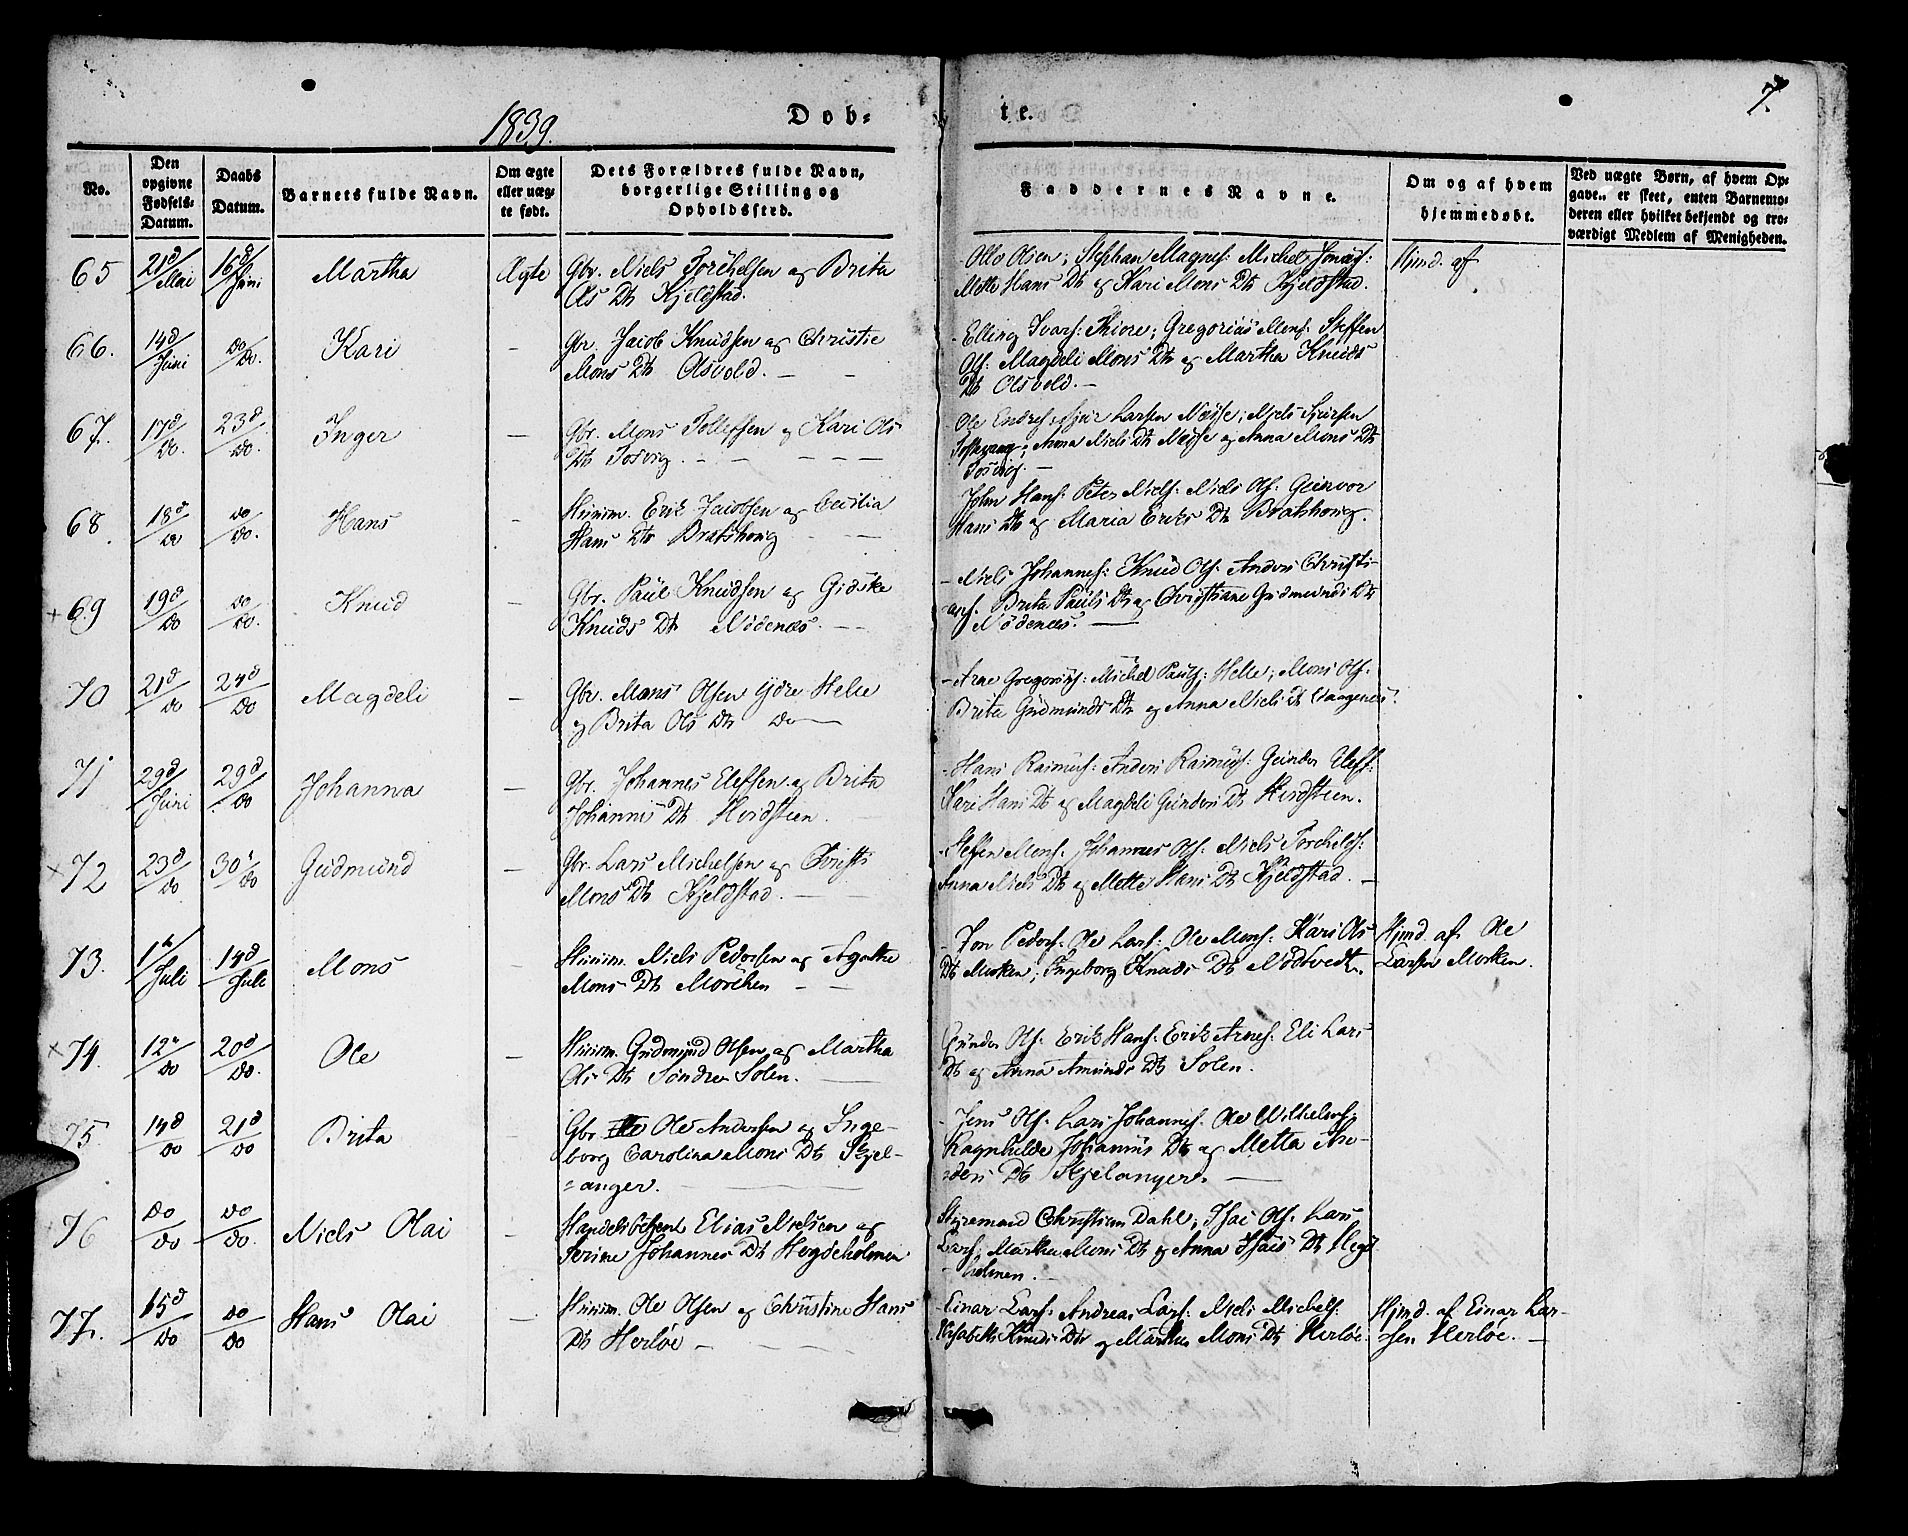 1839.
Døb-
te.
7.
No.
Den opgivne Fødsels-Datum.
Daabs Datum.
Barnets fulde Navn.
Om ægte eller uæg-te født.
Dets Forældres fulde Navn, borgerlige Stilling og Opholdssted.
Faddernes Navne.
Om og af hvem hjemmedøbt.
Ved uægte Børn, af hvem Op-gaven er skeet, enten Barnemo-deren eller hvilket bekjendt og tro-værdigt Medlem af Menigheden.
65 21d/Mai 16d/Juni Martha Ægte
Gbr. Niels Torkelsen og Brita
Ols Dt Kjeldstad.
Olle Olsen; Stephan Magnes: Michel Jonæs:
Mette Hans Dt og Kari Mons Dt Kjeldstad.
Hjmd. af
66. 14d/Juni do/do. Kari -
Gbr. Jacob Knudsen og Christie
Mons Dt Olsvold. - -
Elling Ivars: Gregorius Mons: Steffen
Ols: Magdeli Mons Dt og Martha Knuds
Dt Olsvold. -
67. 17d/do. 23d/do. Inger -
Gbr. Mons Tolleffsen og Kari Ols
Dt Tosvig. - - - - -
Ole Endres: Larsen Niels Sjursen
Anna Niels Dt og Anna Mons Dt
Tosvig. -
68. 18d/do do/do. Hans -
Huusm. Erik Jacobsen og Cecilia
Hans Dt Bratshoug - -
John Hans: Peter Niels: Niels Ols: Geirvor
Hans Dt og Maria Eriks Dt Bratshoug.
+ 69 19d/do do/do. Knud -
Gbr. Paul Knudsen og Gidske
Knuds Dt Nødenæs. - -
- Niels Johannes: Knud Ols: Anders Christi-
ans. Brita Pauls Dt og Christiane Gudmunds Dt
Nødenæs. -
70 21d/do 24d/do Magdeli -
Gbr. Mons Olsen Ydre Helle
og Brita Ols Dt do -
- Arne Gregorius: Michel Pauls: Helle; Mons Ols:
Brita Gudmunds Dt og Anna Niels Dt
71 29d/Juni 29d/do Johanna -
Gbr. Johannes Eleffsen og Brita
Johannis Dt Hvidsteen.
- Hans Rasmus: Anders Rasmus: Gunder Eleff:
Kari Hans Dt og Magdeli Gunders Dt Hvidsteen.
× 72 23d/do 30./do Gudmund -
Gbr. Lars Michelsen og
Mons Dt Kjeldstad. - -
Steffen Mons: Johannes Ols: Niels Torchilds:
Anna Niels Dt og Mette Hans Dt Kjeldstad. -
73. 1./Juli 14d/Juli Mons -
Huusm. Niels Pedersen og Agathe
Mons Dt Morchen - -
- Jon Peders: Ole Lars: Ole Mons: Kari Ols
Dt Morken; Ingeborg Knuds Dt Nødtvedt.
Hjmd. af Ole
Larsen Morken.
× 74. 12./do 20d/do. Ole -
Huusm. Gudmund Olsen og Martha
Ols Dt Søndre Solen. -
Gunder Ols: Erik Hans: Erik Arnes: Eli Lars
Dt og Anna Amunds Dt Solen.
75. 14d/do 21d/do Brita -
Gbr. Ole Andersen og Inge-
borg Carolina Mons Dt Skjel-
=anger. -
- Jens Ols: Lars Johannes: Ole Wilhelms:
Ragnhilde Johannis Dt og Metta An-
=ders Dt Skjelanger. -
76 do/do do/do. Niels Olai -
Handelsbetjent Elias Nielsen og
Serine Johannes Dt Hegøeholmen
Styremand Christian Dahl; Isac Ols: Lars
Lars; Martha Mons Dt og Anna Isacs Dt Hegø
holmen. -
77. 15d/do do/do Hans Olai -
Huusm. Ole Olsen og Christine Hans
Dt Herløe - - - -
- Einar Lars: Andreas Lars: Niels Michels:
Elisabeth Knuds Dt og Martha Mons Dt Herløe.
Hjmd. af Einar Lar-
sen Herløe. -